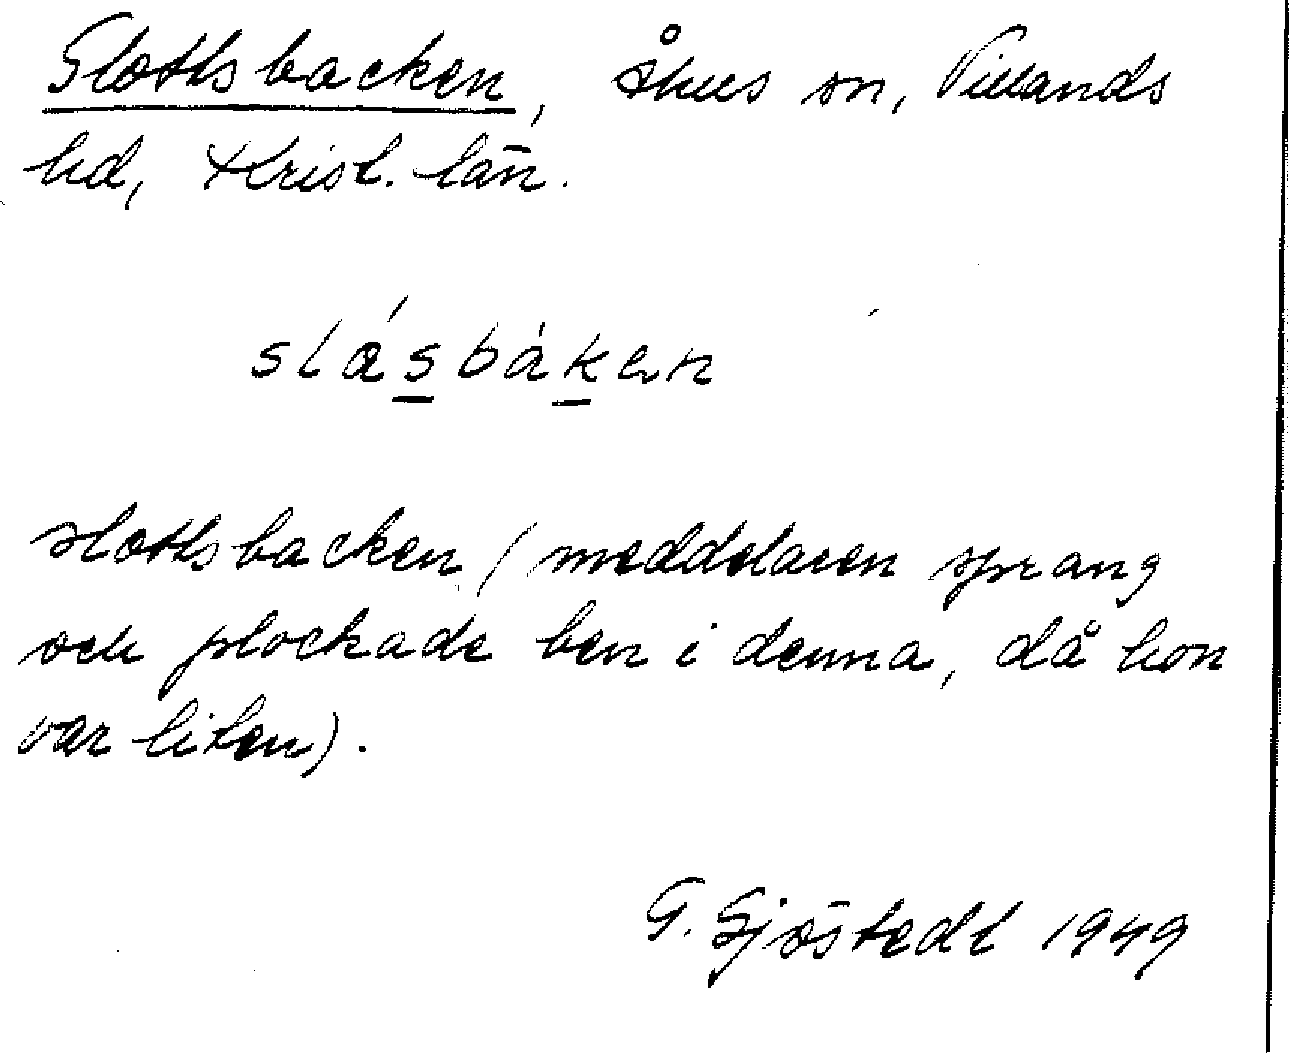 Slottsbacken, Åhus sn, Villands
hd, Krist. län.
slásbáken
slottsbacken (meddelaren sprang
och plockade ben i denna, då hon
var liten).
G. Sjöstedt 1949